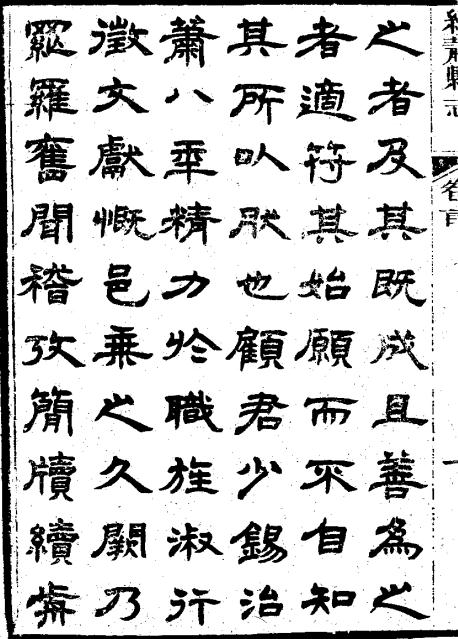 縣志
之者及其既成且善為之
者適符其始願而不自知
其所㠯肰也顧君少錫治
蕭八秊精力於職旌淑行
徵文獻慨邑乗之久闕乃
羅舊聞稽攷簡牘續